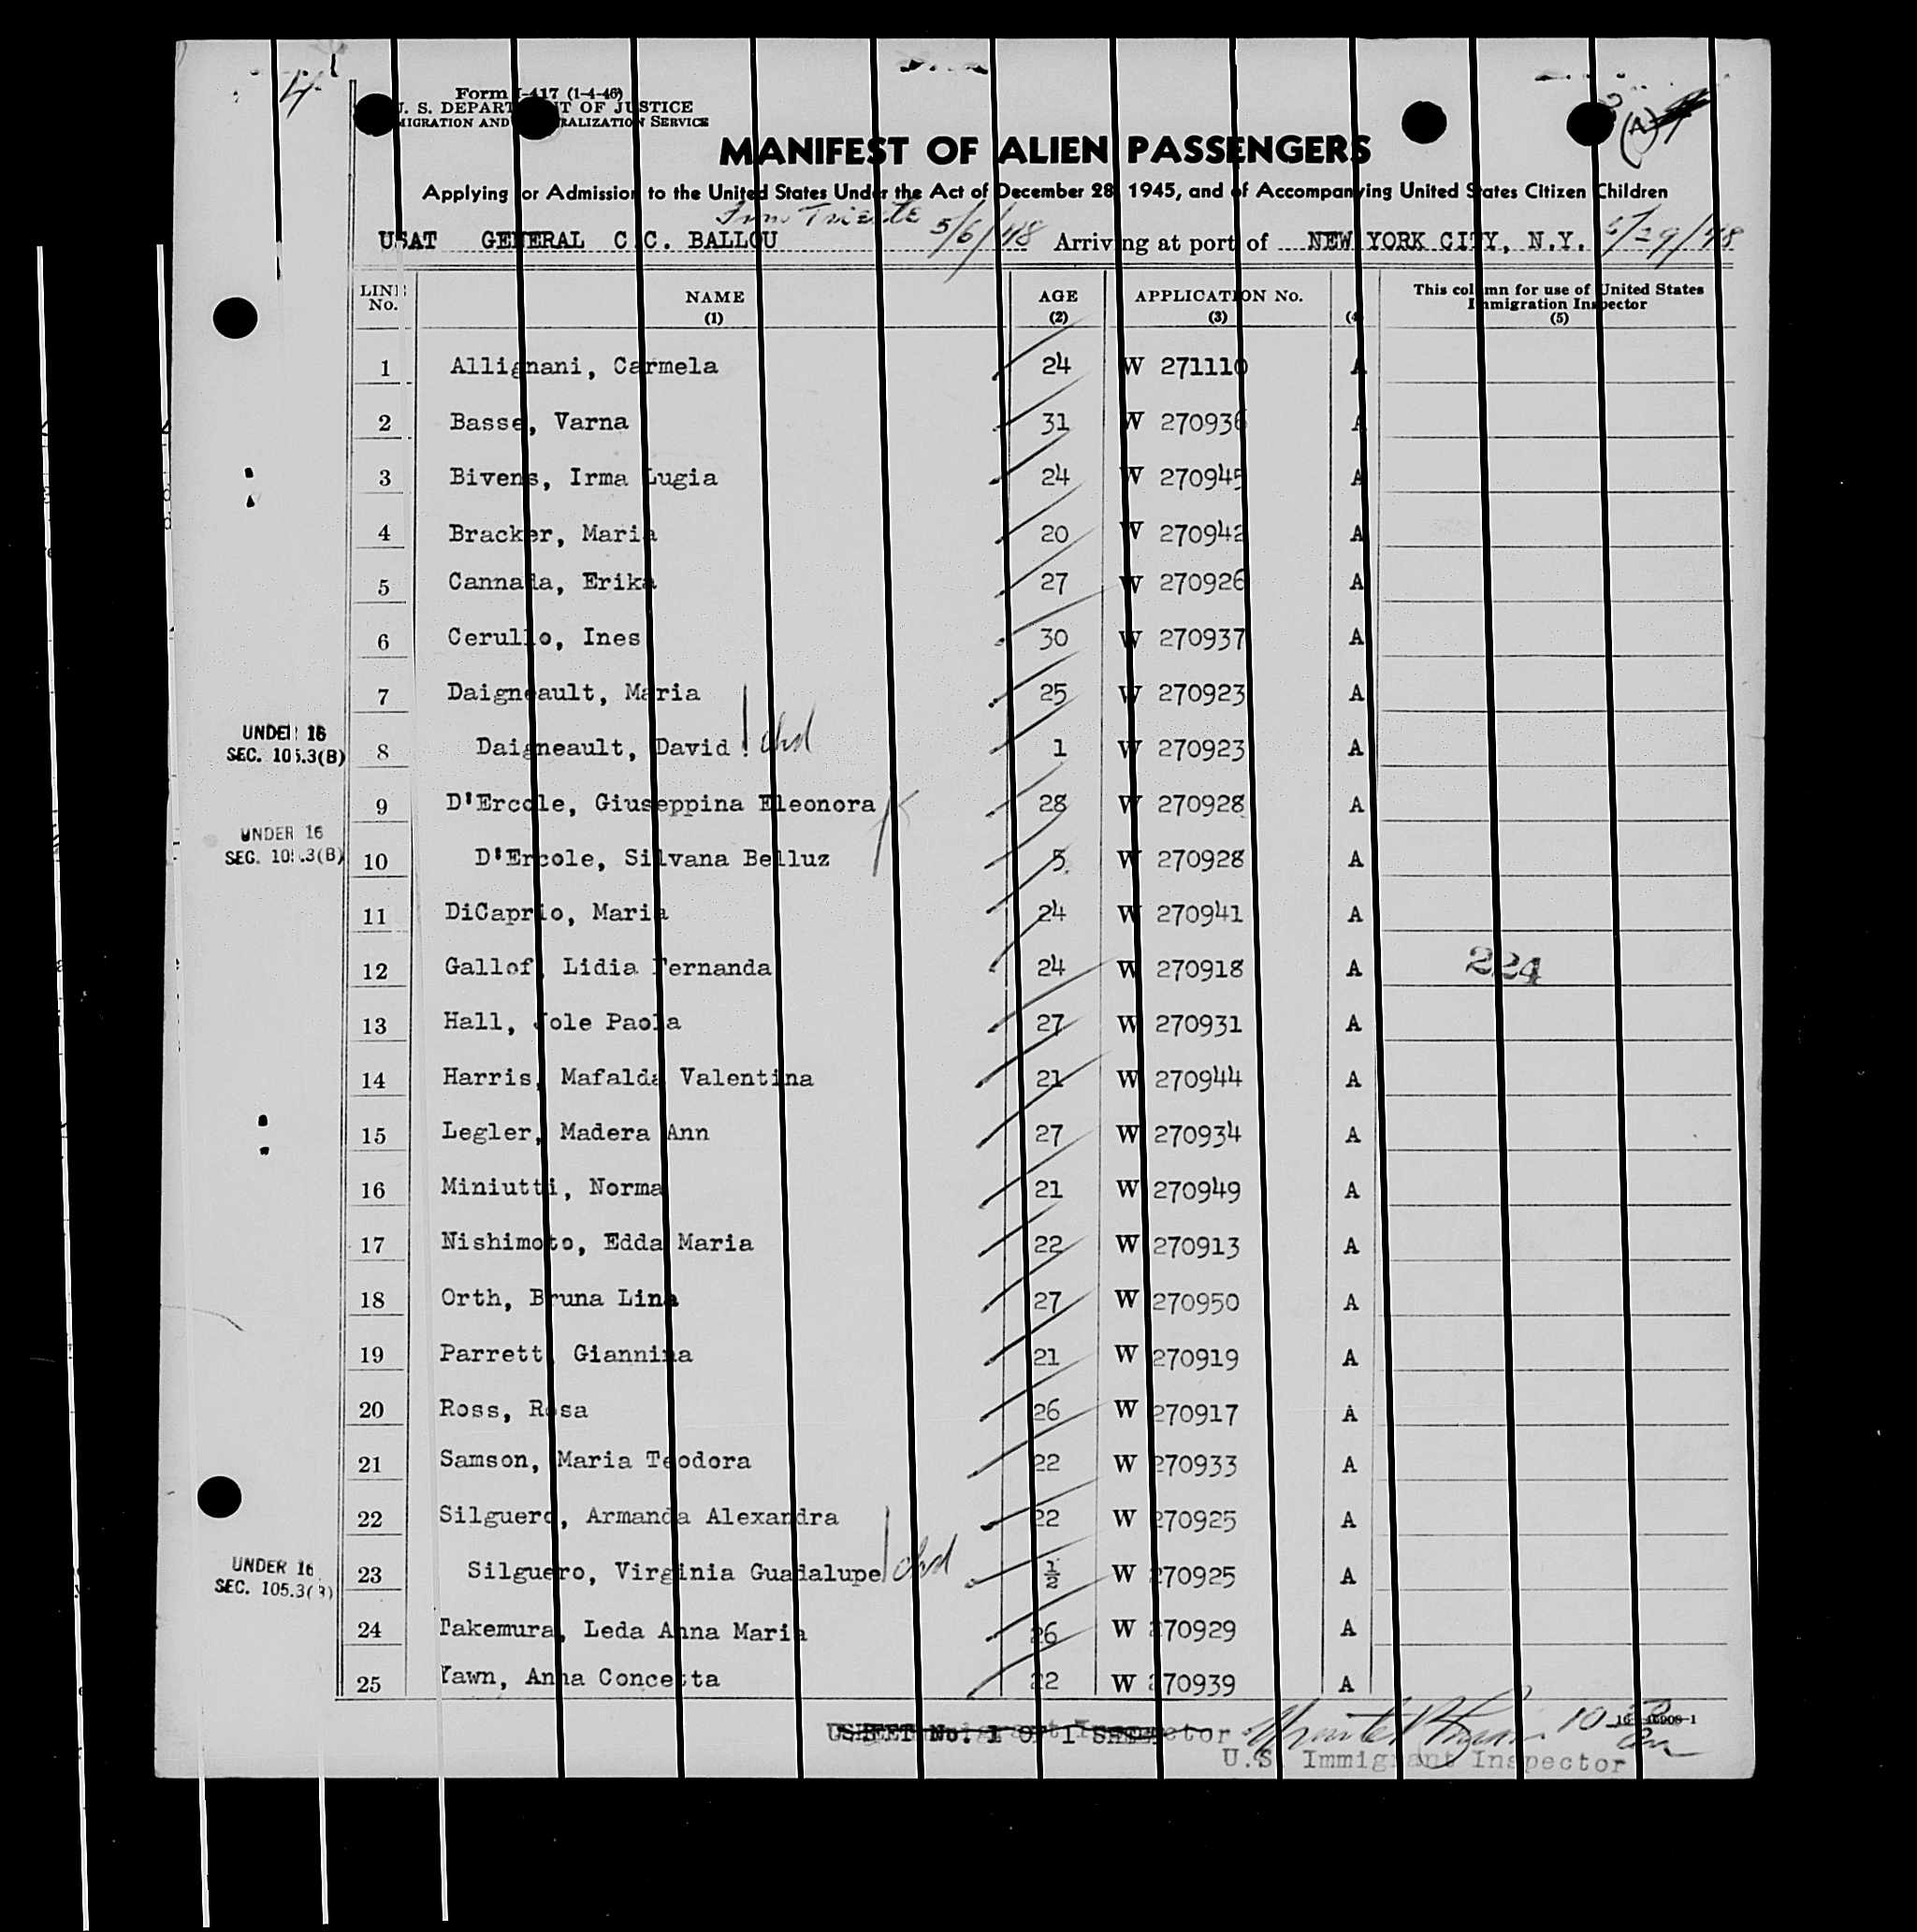 Form I-417 (1-4-46)
U. S. DEPARTMENT OF JUSTICE
IMMIGRATION AND NATURALIZATION SERVICE
(A)
MANIFEST OF ALIEN PASSENGERS
Applying for Admission to the United States Under the Act of December 28, 1945, and of Accompanying United States Citizen Children
from Trieste 5/6/48
USAT GENERAL C.C. BALLOU Arriving at port of NEW YORK CITY, N.Y. 5/29/48
LINE No. NAME (1) AGE (2) APPLICATION No. (3) (4) This column for use of United States Immigration Inspector (5)
1 Allignani, Carmela 24 W 271110 A
2 Basse, Varna 31 W 270936 A
3 Bivens, Irma Lugia 24 W 270945 A
4 Bracker, Maria 20 W 270942 A
5 Cannada, Erika 27 W 270926 A
6 Cerullo, Ines 30 W 270937 A
7 Daigneault, Maria 25 W 270923 A
UNDER 16 SEC. 105.3(B) 8 Daigneault, David chd 1 W 270923 A
9 D'Ercole, Giuseppina Eleonora 28 W 270928 A
UNDER 16 SEC. 105.3(B) 10 D'Ercole, Silvana Belluz 5 W 270928 A
11 DiCaprio, Maria 24 W 270941 A
12 Gallof, Lidia Fernanda 24 W 270918 A 224
13 Hall, Jole Paola 27 W 270931 A
14 Harris, Mafalda Valentina 21 W 270944 A
15 Legler, Madera Ann 27 W 270934 A
16 Miniutti, Norma 21 W 270949 A
17 Nishimoto, Edda Maria 22 W 270913 A
18 Orth, Bruna Lina 27 W 270950 A
19 Parrett, Giannina 21 W 270919 A
20 Ross, Rosa 26 W 270917 A
21 Samson, Maria Teodora 22 W 270933 A
22 Silguero, Armanda Alexandra 22 W 270925 A
UNDER 16 SEC. 105.3(B) 23 Silguero, Virginia Guadalupe chd ½ W 270925 A
24 Takemura, Leda Anna Maria 26 W 270929 A
25 Yawn, Anna Concetta 22 W 270939 A
SHEET No. 1 OF 1
U.S. Immigrant Inspector